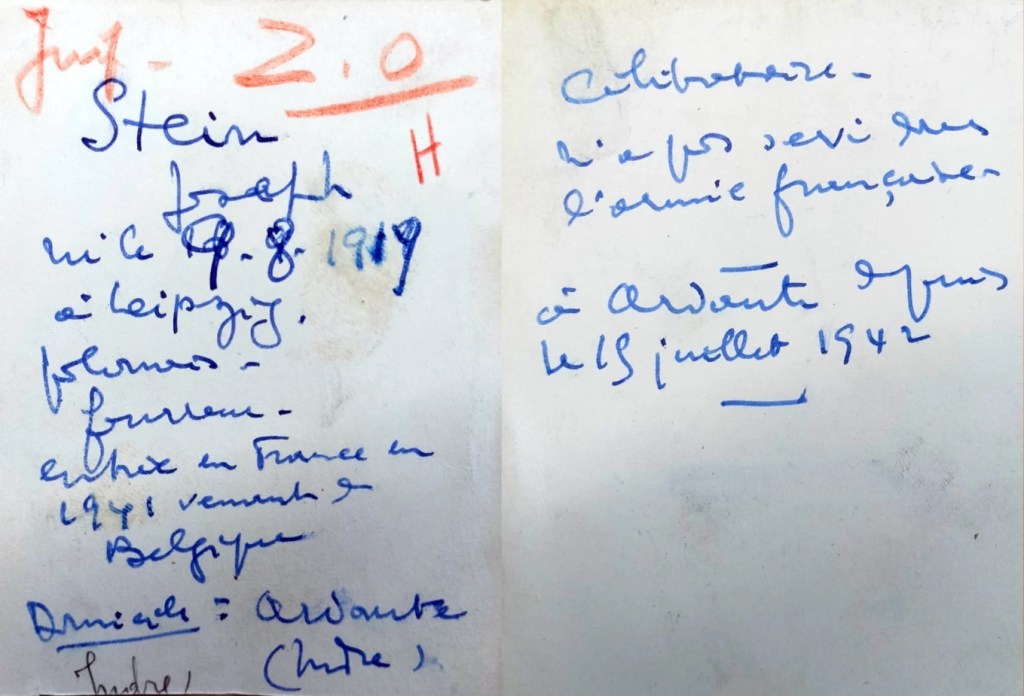 Juif - Z.O
H
Stein
Joseph
né le 19.8.1919
à Leipzig.
polonais -
fourreur -
entré en France en
1941 venant de
Belgique
Domicile : Ardentes
(Indre)
Indre,
Célibataire -
n'a pas servi dans
l'armée française -
à Ardentes depuis
le 15 juillet 1942